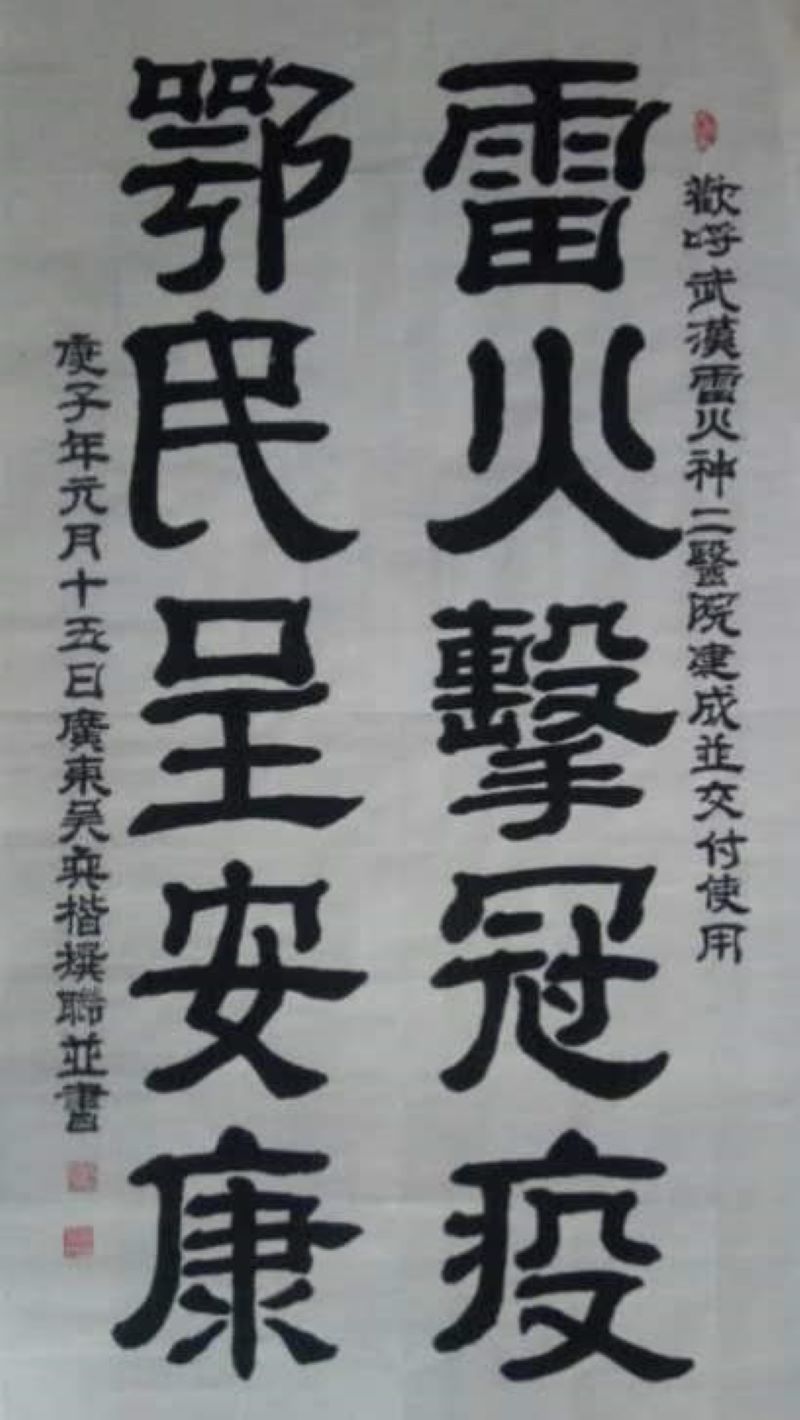 歡呼武漢雷火神二醫院建成並交付使用
雷火擊冠疫
鄂民呈安康
庚子年元月十五日廣東吴典楷撰聯並書